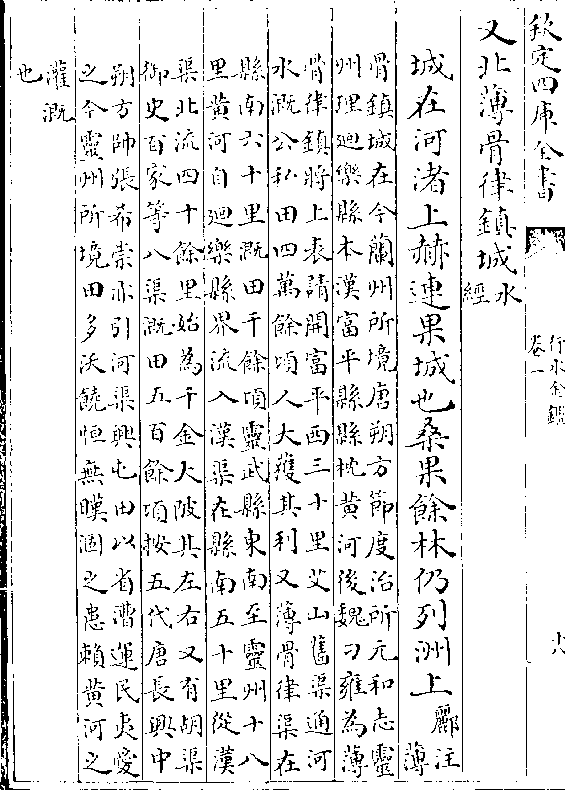 欽定四庫全書
行水金鑑
卷一
十八
又北薄骨律鎮城水
經
城在河渚上赫連果城也桑果餘林仍列洲上酈注
薄
骨鎮城在今蘭州所境唐朔方節度治所元和志靈
州理迴樂縣本漢富平縣縣枕黄河後魏刁雍為薄
骨律鎮將上表請開富平西三十里艾山舊渠通河
水溉公私田四萬餘頃人大獲其利又薄骨律渠在
縣南六十里溉田千餘頃靈武縣東南至靈州十八
里黄河自迴樂縣界流入漢渠在縣南五十里從漢
渠北流四十餘里始為千金大陂其左右又有胡渠
御史百家等八渠溉田五百餘頃按五代唐長興中
朔方帥張希崇亦引河渠興屯田以省漕運民夷愛
之今靈州所境田多沃饒恒無暵涸之患賴黄河之
灌溉
也